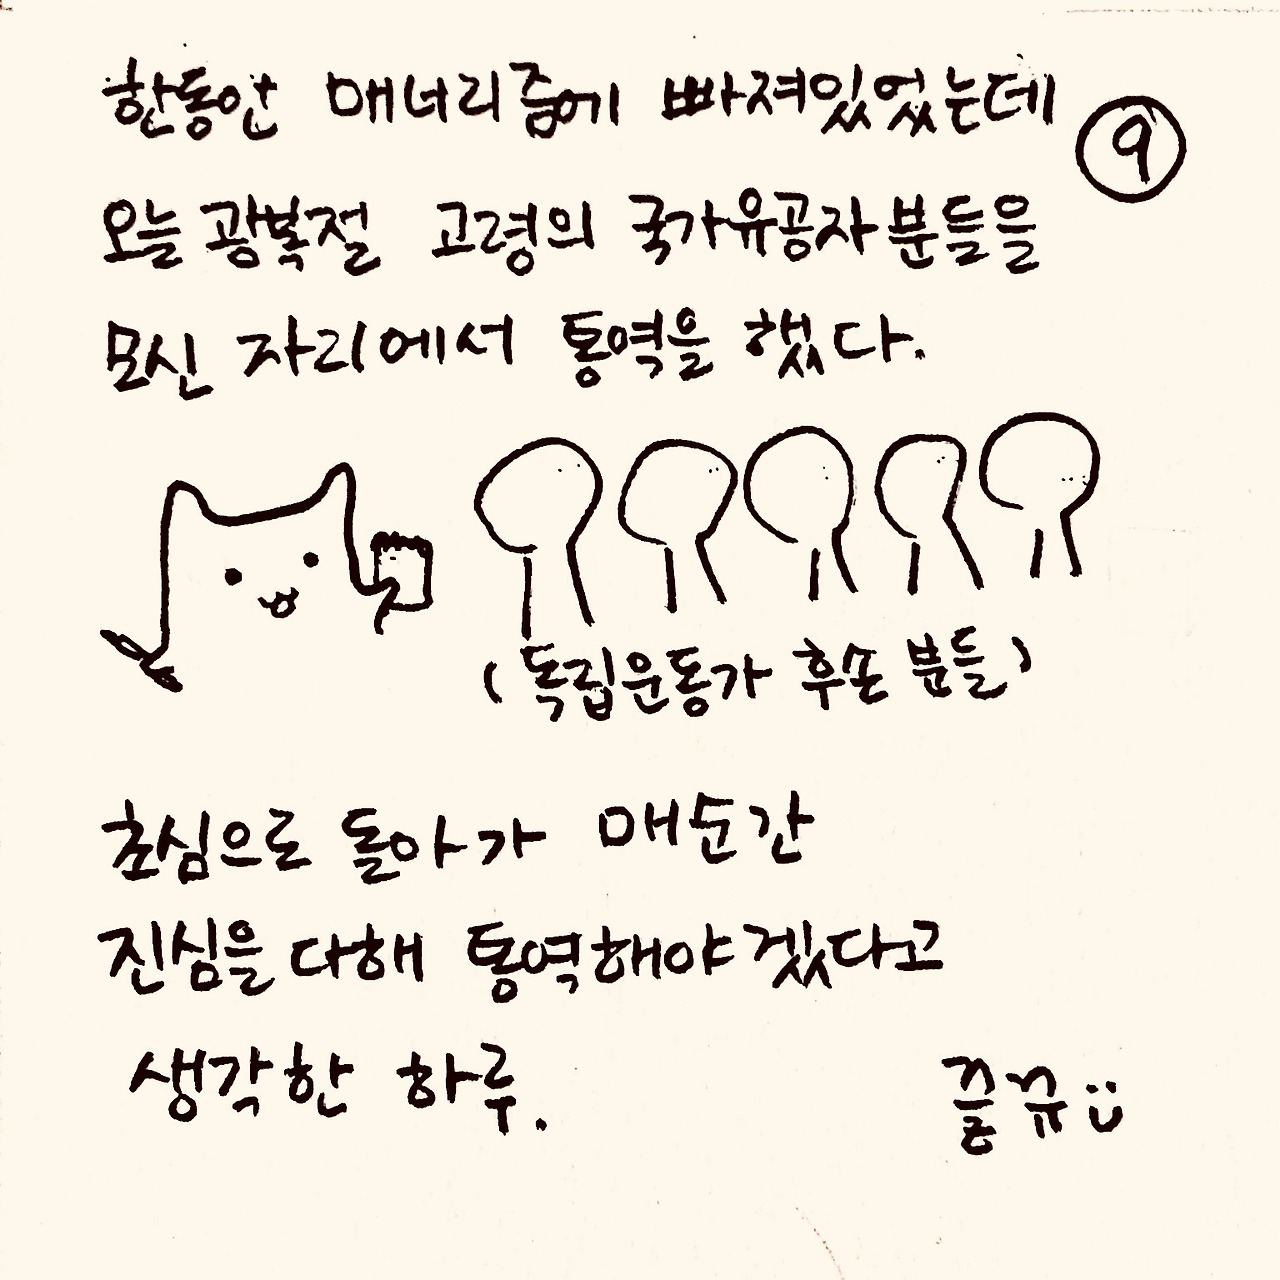 한동안 매너리즘에 빠져있었는데
⑨
오늘 광복절 고령의 국가유공자분들을
모신 자리에서 통역을 했다.
(독립운동가 후손 분들)
초심으로 돌아가 매순간
진심을 다해 통역해야겠다고
생각한 하루.